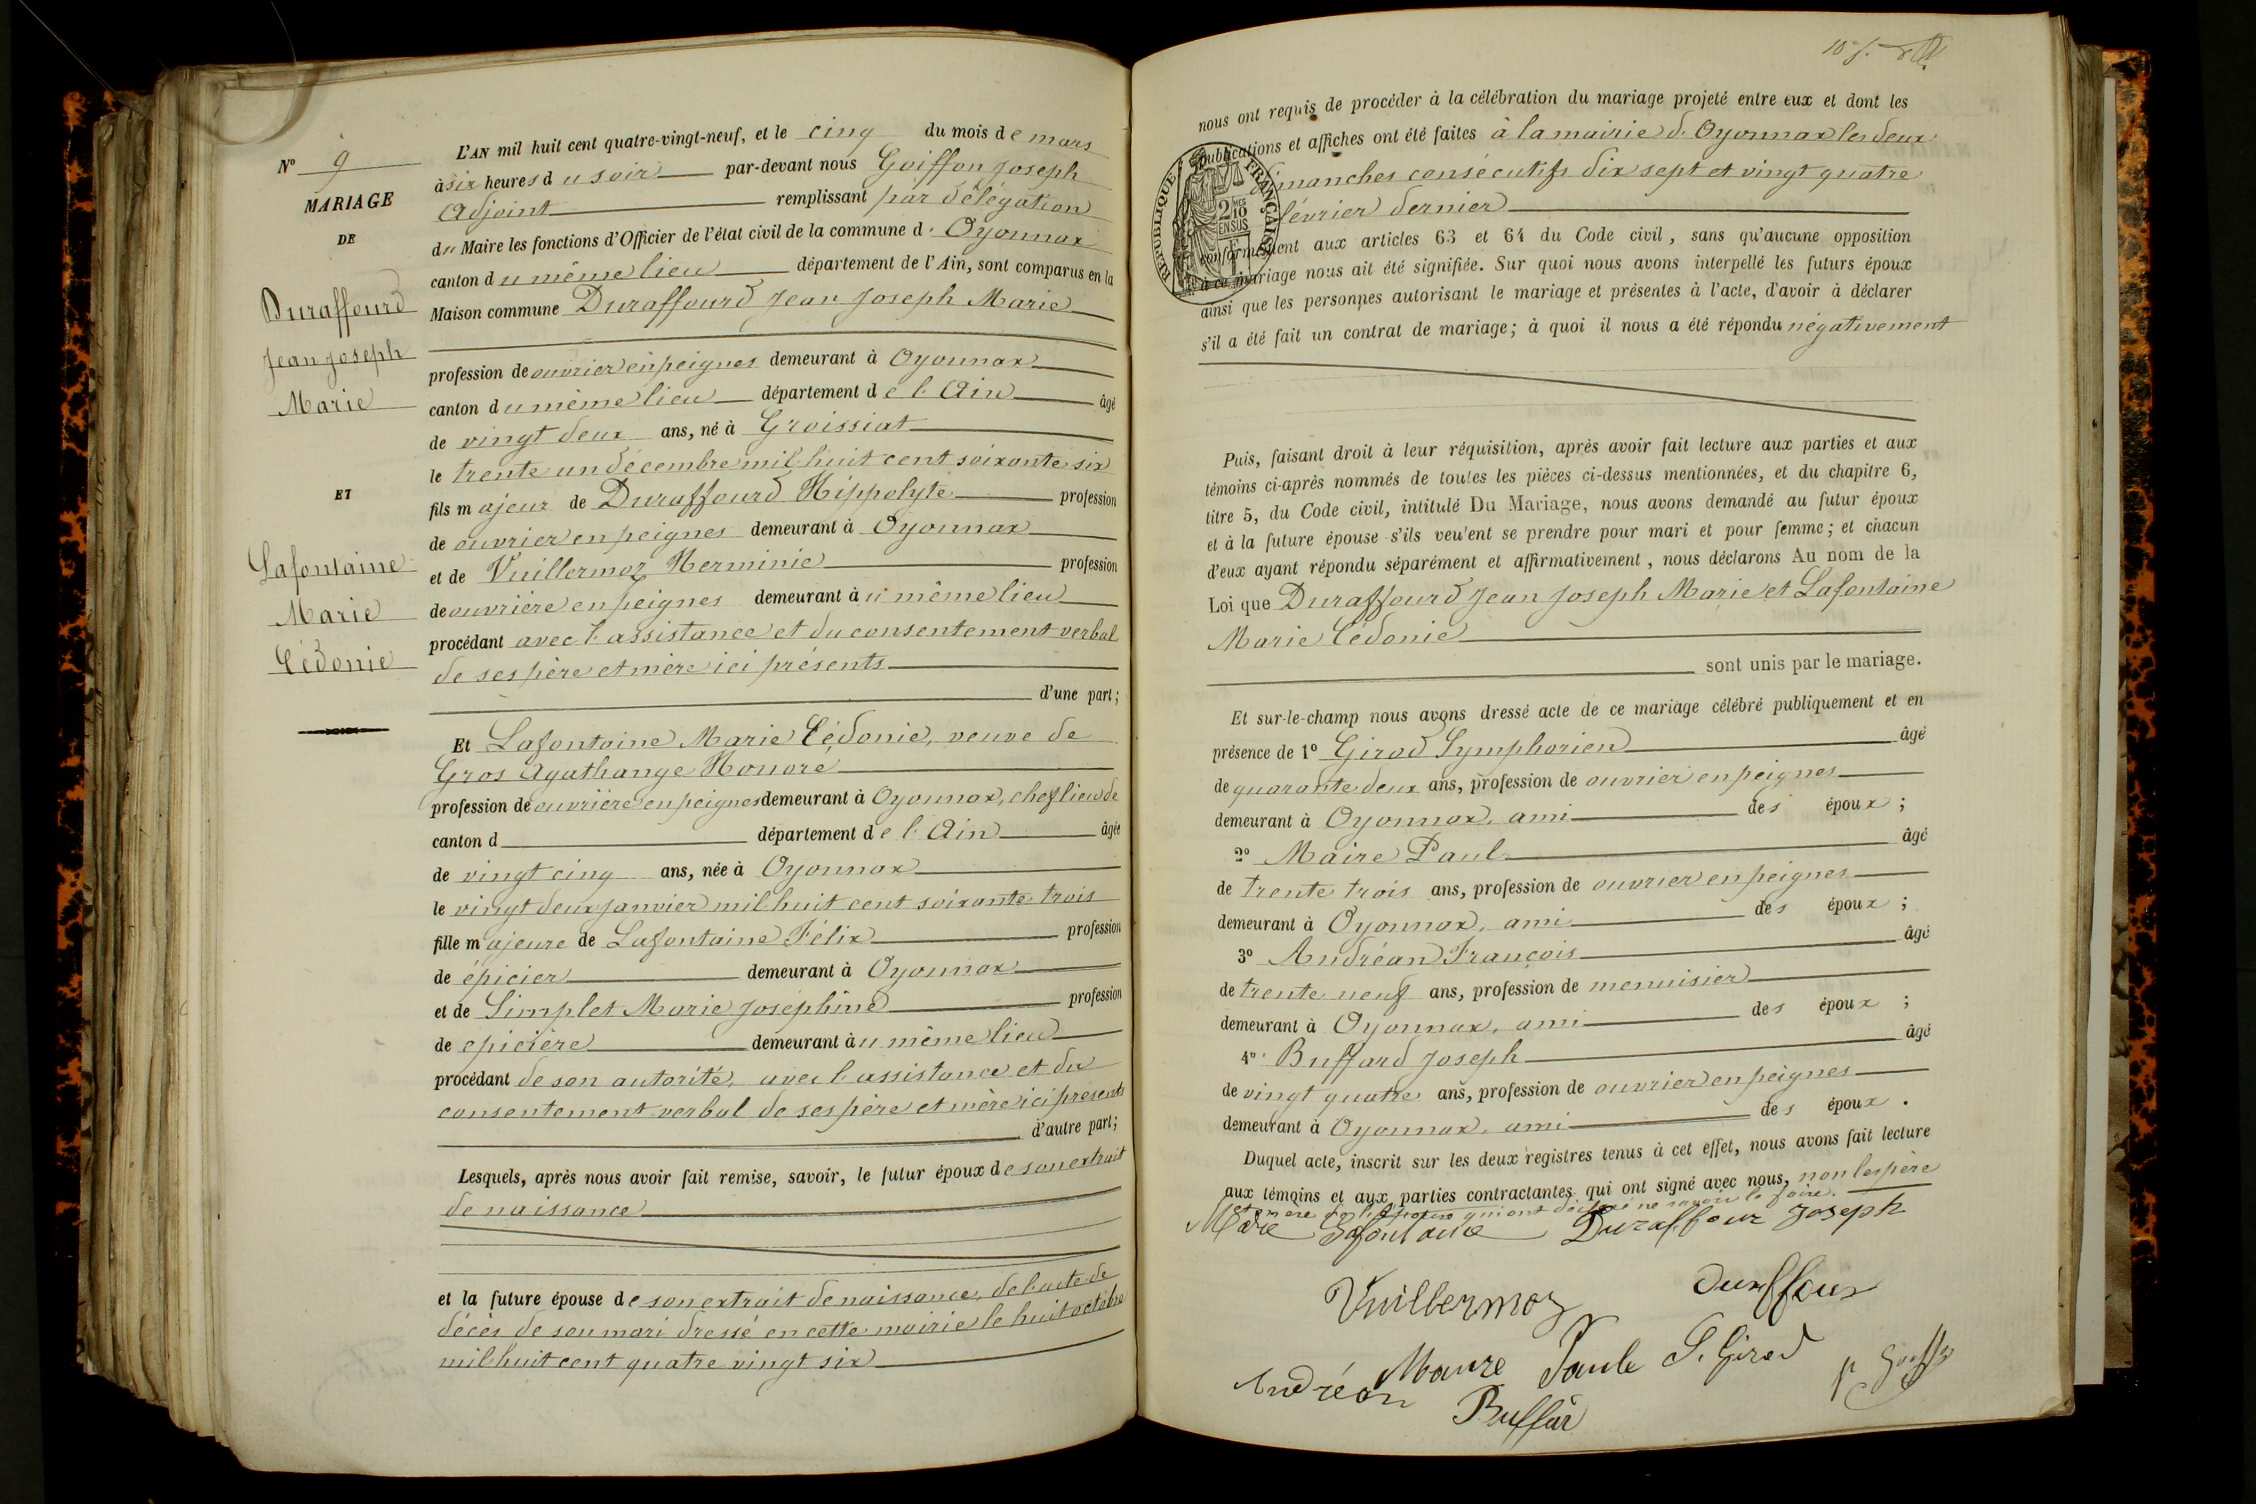 N° 9
MARIAGE
DE
Duraffourd
Jean Joseph
Marie
ET
Lafontaine
Marie
Cédonie
L'AN mil huit cent quatre-vingt-neuf, et le cinq du mois de mars
à six heures du soir par-devant nous Goiffon Joseph
Adjoint remplissant par délégation
du Maire les fonctions d'Officier de l'état civil de la commune d' Oyonnax
canton du même lieu département de l'Ain, sont comparus en la
Maison commune Duraffourd Jean Joseph Marie
profession de ouvrier en peignes demeurant à Oyonnax
canton du même lieu département de l'Ain âgé
de vingt deux ans, né à Groissiat
le trente un décembre mil huit cent soixante six
fils majeur de Duraffourd Hippolyte profession
de ouvrier en peignes demeurant à Oyonnax
et de Vuillermoz Herminie profession
de ouvrière en peignes demeurant au même lieu
procédant avec l'assistance et du consentement verbal
de ses père et mère ici présents
d'une part;
Et Lafontaine Marie Cédonie, veuve de
Gros Agathange Honoré
profession de ouvrière en peignes demeurant à Oyonnax, chef lieu de
canton d département de l'Ain âgée
de vingt cinq ans, née à Oyonnax
le vingt deux janvier mil huit cent soixante trois
fille majeure de Lafontaine Félix profession
de épicier demeurant à Oyonnax
et de Simplet Marie Joséphine profession
de epicière demeurant au même lieu
procédant de son autorité, avec l'assistance et du
consentement verbal de ses père et mère ici présents
d'autre part;
Lesquels, après nous avoir fait remise, savoir, le futur époux de son extrait
de naissance
et la future épouse de son extrait de naissance, de l'acte de
décès de son mari dressé en cette mairie le huit octobre
mil huit cent quatre vingt six
nous ont requis de procéder à la célébration du mariage projeté entre eux et dont les
publications et affiches ont été faites à la mairie d'Oyonnax les deux
dimanches consécutifs dix sept et vingt quatre
février dernier
RÉPUBLIQUE FRANÇAISE
2 MES
10
EN SUS
conformément aux articles 63 et 64 du Code civil, sans qu'aucune opposition
à ce mariage nous ait été signifiée. Sur quoi nous avons interpellé les futurs époux
ainsi que les personnes autorisant le mariage et présentes à l'acte, d'avoir à déclarer
s'il a été fait un contrat de mariage; à quoi il nous a été répondu négativement
Puis, faisant droit à leur réquisition, après avoir fait lecture aux parties et aux
témoins ci-après nommés de toutes les pièces ci-dessus mentionnées, et du chapitre 6,
titre 5, du Code civil, intitulé Du Mariage, nous avons demandé au futur époux
et à la future épouse s'ils veulent se prendre pour mari et pour femme; et chacun
d'eux ayant répondu séparément et affirmativement, nous déclarons Au nom de la
Loi que Duraffourd Jean Joseph Marie et Lafontaine
Marie Cédonie
sont unis par le mariage.
Et sur-le-champ nous avons dressé acte de ce mariage célébré publiquement et en
présence de 1° Girod Symphorien âgé
de quarante deux ans, profession de ouvrier en peignes
demeurant à Oyonnax, ami des époux;
2° Maire Paul âgé
de trente trois ans, profession de ouvrier en peignes
demeurant à Oyonnax, ami des époux;
3° Andréan François âgé
de trente neuf ans, profession de menuisier
demeurant à Oyonnax, ami des époux;
4° Buffard Joseph âgé
de vingt quatre ans, profession de ouvrier en peignes
demeurant à Oyonnax, ami des époux.
Duquel acte, inscrit sur les deux registres tenus à cet effet, nous avons fait lecture
aux témoins et aux parties contractantes qui ont signé avec nous, non les père
et mère de l'épouse qui ont déclaré ne savoir le faire.
Lafontaine Duraffour Joseph
Vuilbermoz Duraffour
Andréan Maure Paule S. Girod
Buffar